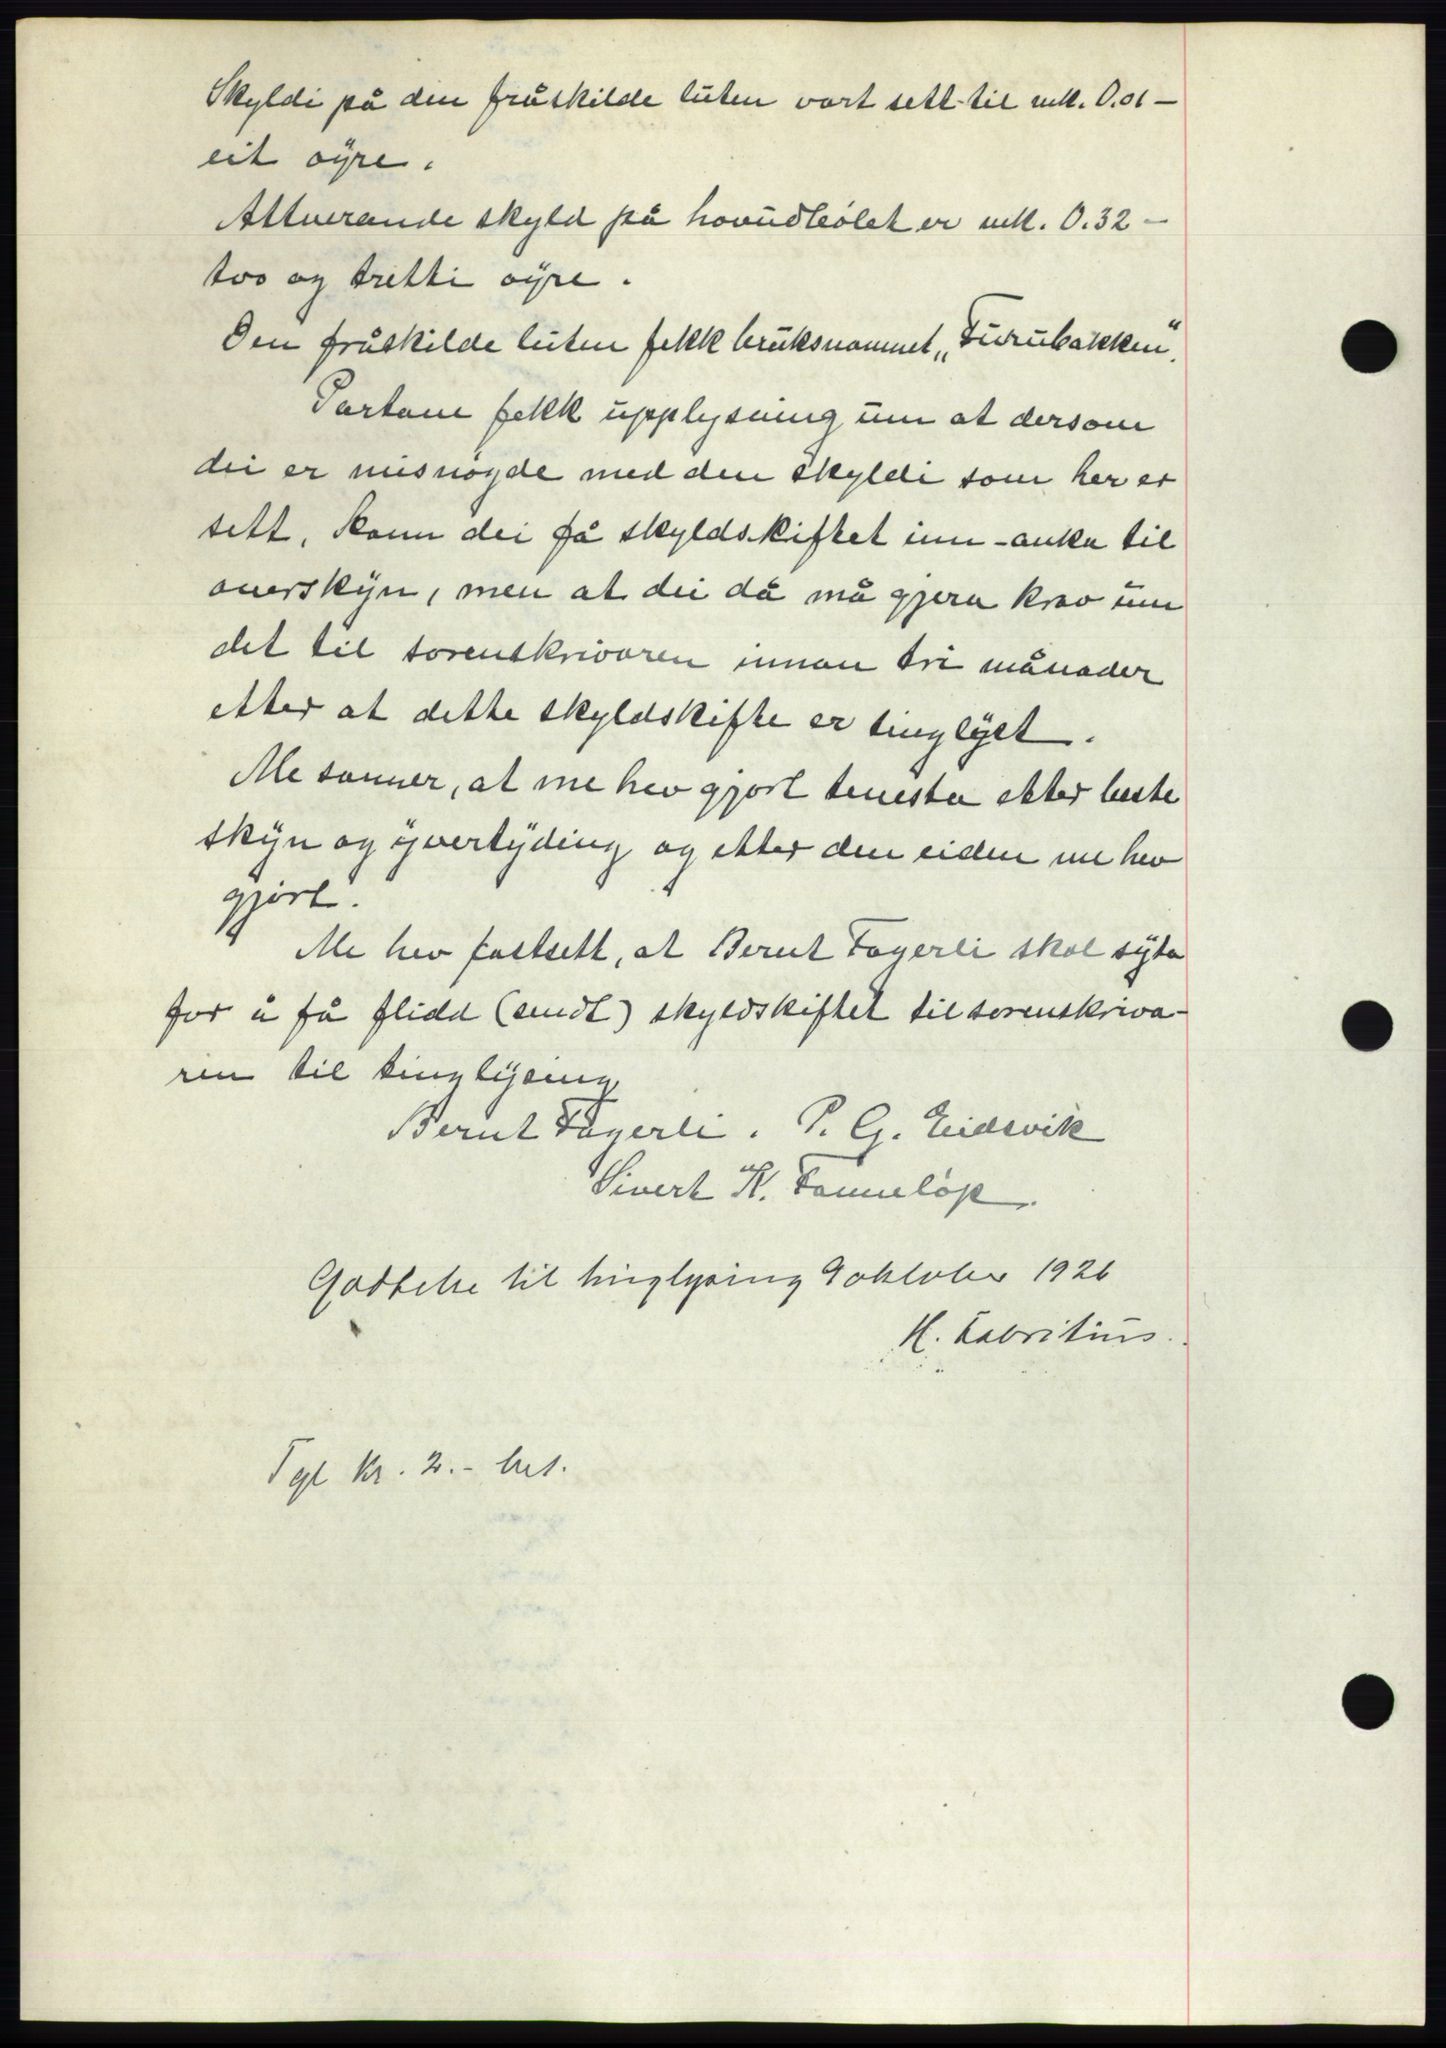 Skyldi på den fråskilde luten vart sett til mk. 0.01 –
eit øyre.
Attverande skyld på hovudbølet er mk. 0.32 –
tvo og tretti øyre.
Den fråskilde luten fekk bruksnamnet „Furubakken".
Partane fekk upplysning um at dersom
dei er misnøgde med den skyldi som her er
sett, kann dei få skyldskiftet inn-anka til
overskyn, men at dei då må gjera krav um
det til sorenskrivaren innan tri månader
etter at dette skyldskifte er tinglyst.
Me sanner, at me hev gjort tenesta etter beste
skyn og yvertyding og etter den eiden me hev
gjort.
Me hev fastsett, at Bernt Fagerli skal syta
for å få flidd (sendt) skyldskiftet til sorenskriva-
ren til tinglysing.
Bernt Fagerli. P. G. Eidsvik
Sivert K. Tanneløp.
Godtekе til tinglysing 9 oktober 1926
H. Fabritius.
Tgl kr. 2.- bet.